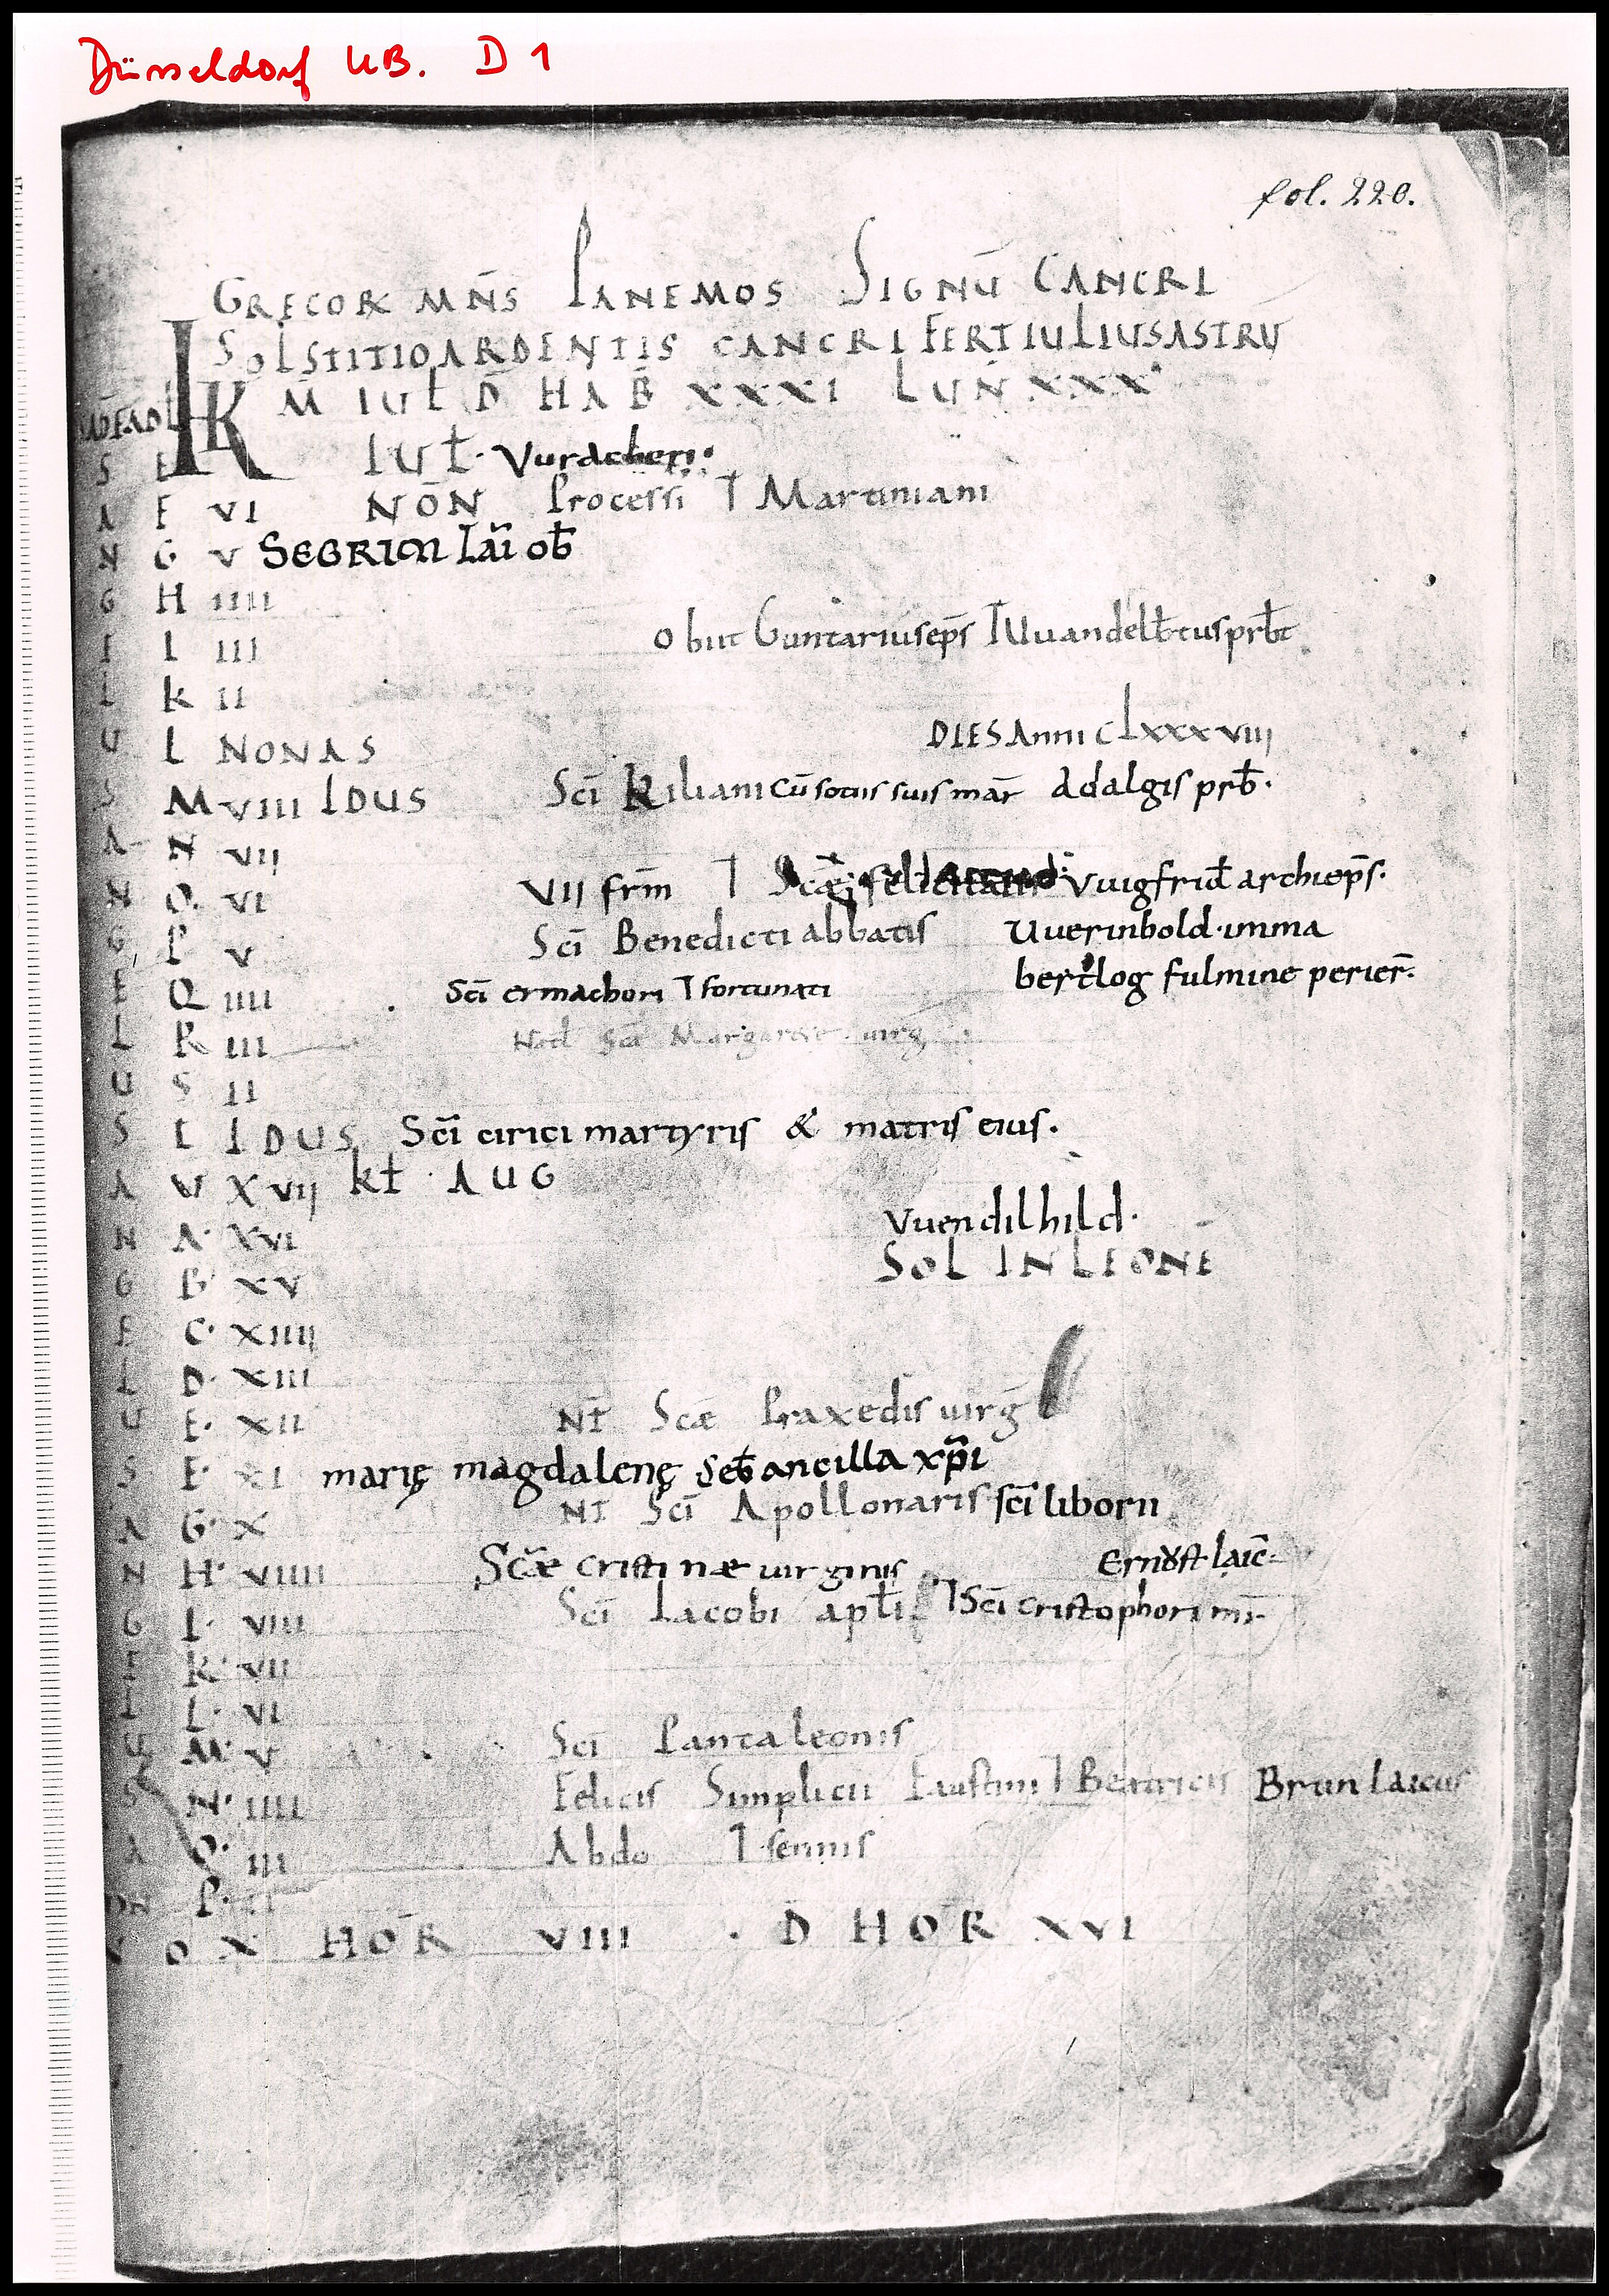 Düsseldorf UB. D 1
fol. 220.
GRECOR MN̄S PANEMOS SIGNŪ CANCRI
SOLSTITIO ARDENTIS CANCRI FERT IULIUS ASTRŪ
M̄ IUL D̄ HAB̄ XXXI LUN̄ XXX
S E K IUƚ· Vuracheri·
A F VI NŌN Processi ⁊ Martiniani
N G V SEGRIM Lāi ob̄
G H IIII
E I III obiit Guntarius ep̄s ⁊ Vuandelb̄tus prb̄t
L K II
U L NONAS DIES Anni CLXXXVIII
S M VIII IDUS Scī Kiliani cū sociis suis mār Adalgis prb̄·
A N VII
N O VI VII frm̄ ⁊ Scāe felicitatis Vuigfrid archiep̄s·
G P V Scī Benedicti abbatis Uuerinbold·imma
E Q IIII Scī ermachori ⁊ fortunati bertlog fulmine perier̄·
L R III Nat̄ Scē Margarete virḡ
U S II
S T IDUS Scī cirici martyris & matris eius·
A V XVII kƚ· AUG
N A· XVI Vuendilhild·
G B XV SOL IN LEONE
E C· XIIII
L D· XIII
U E· XII NT̄ Scae Praxedis uirḡ
S F· XI marię magdalenę Seb̄ ancilla xp̄i
A G· X NT̄ Scī Apollonaris scī liborii
N H· VIIII Scāe cristinae uirginis Ernost laic̄
G I· VIII Scī Iacobi apƚi ⁊ Scī cristophori mr̄
E K· VII
L L· VI
U M· V Scī Pantaleonis
S N· IIII Felicis Simplicii Faustini ⁊ Beatricis Brun laicus
A O· III Abdo ⁊ sennis
P· II
NOX HŌR VIII · D̄ HŌR XVI